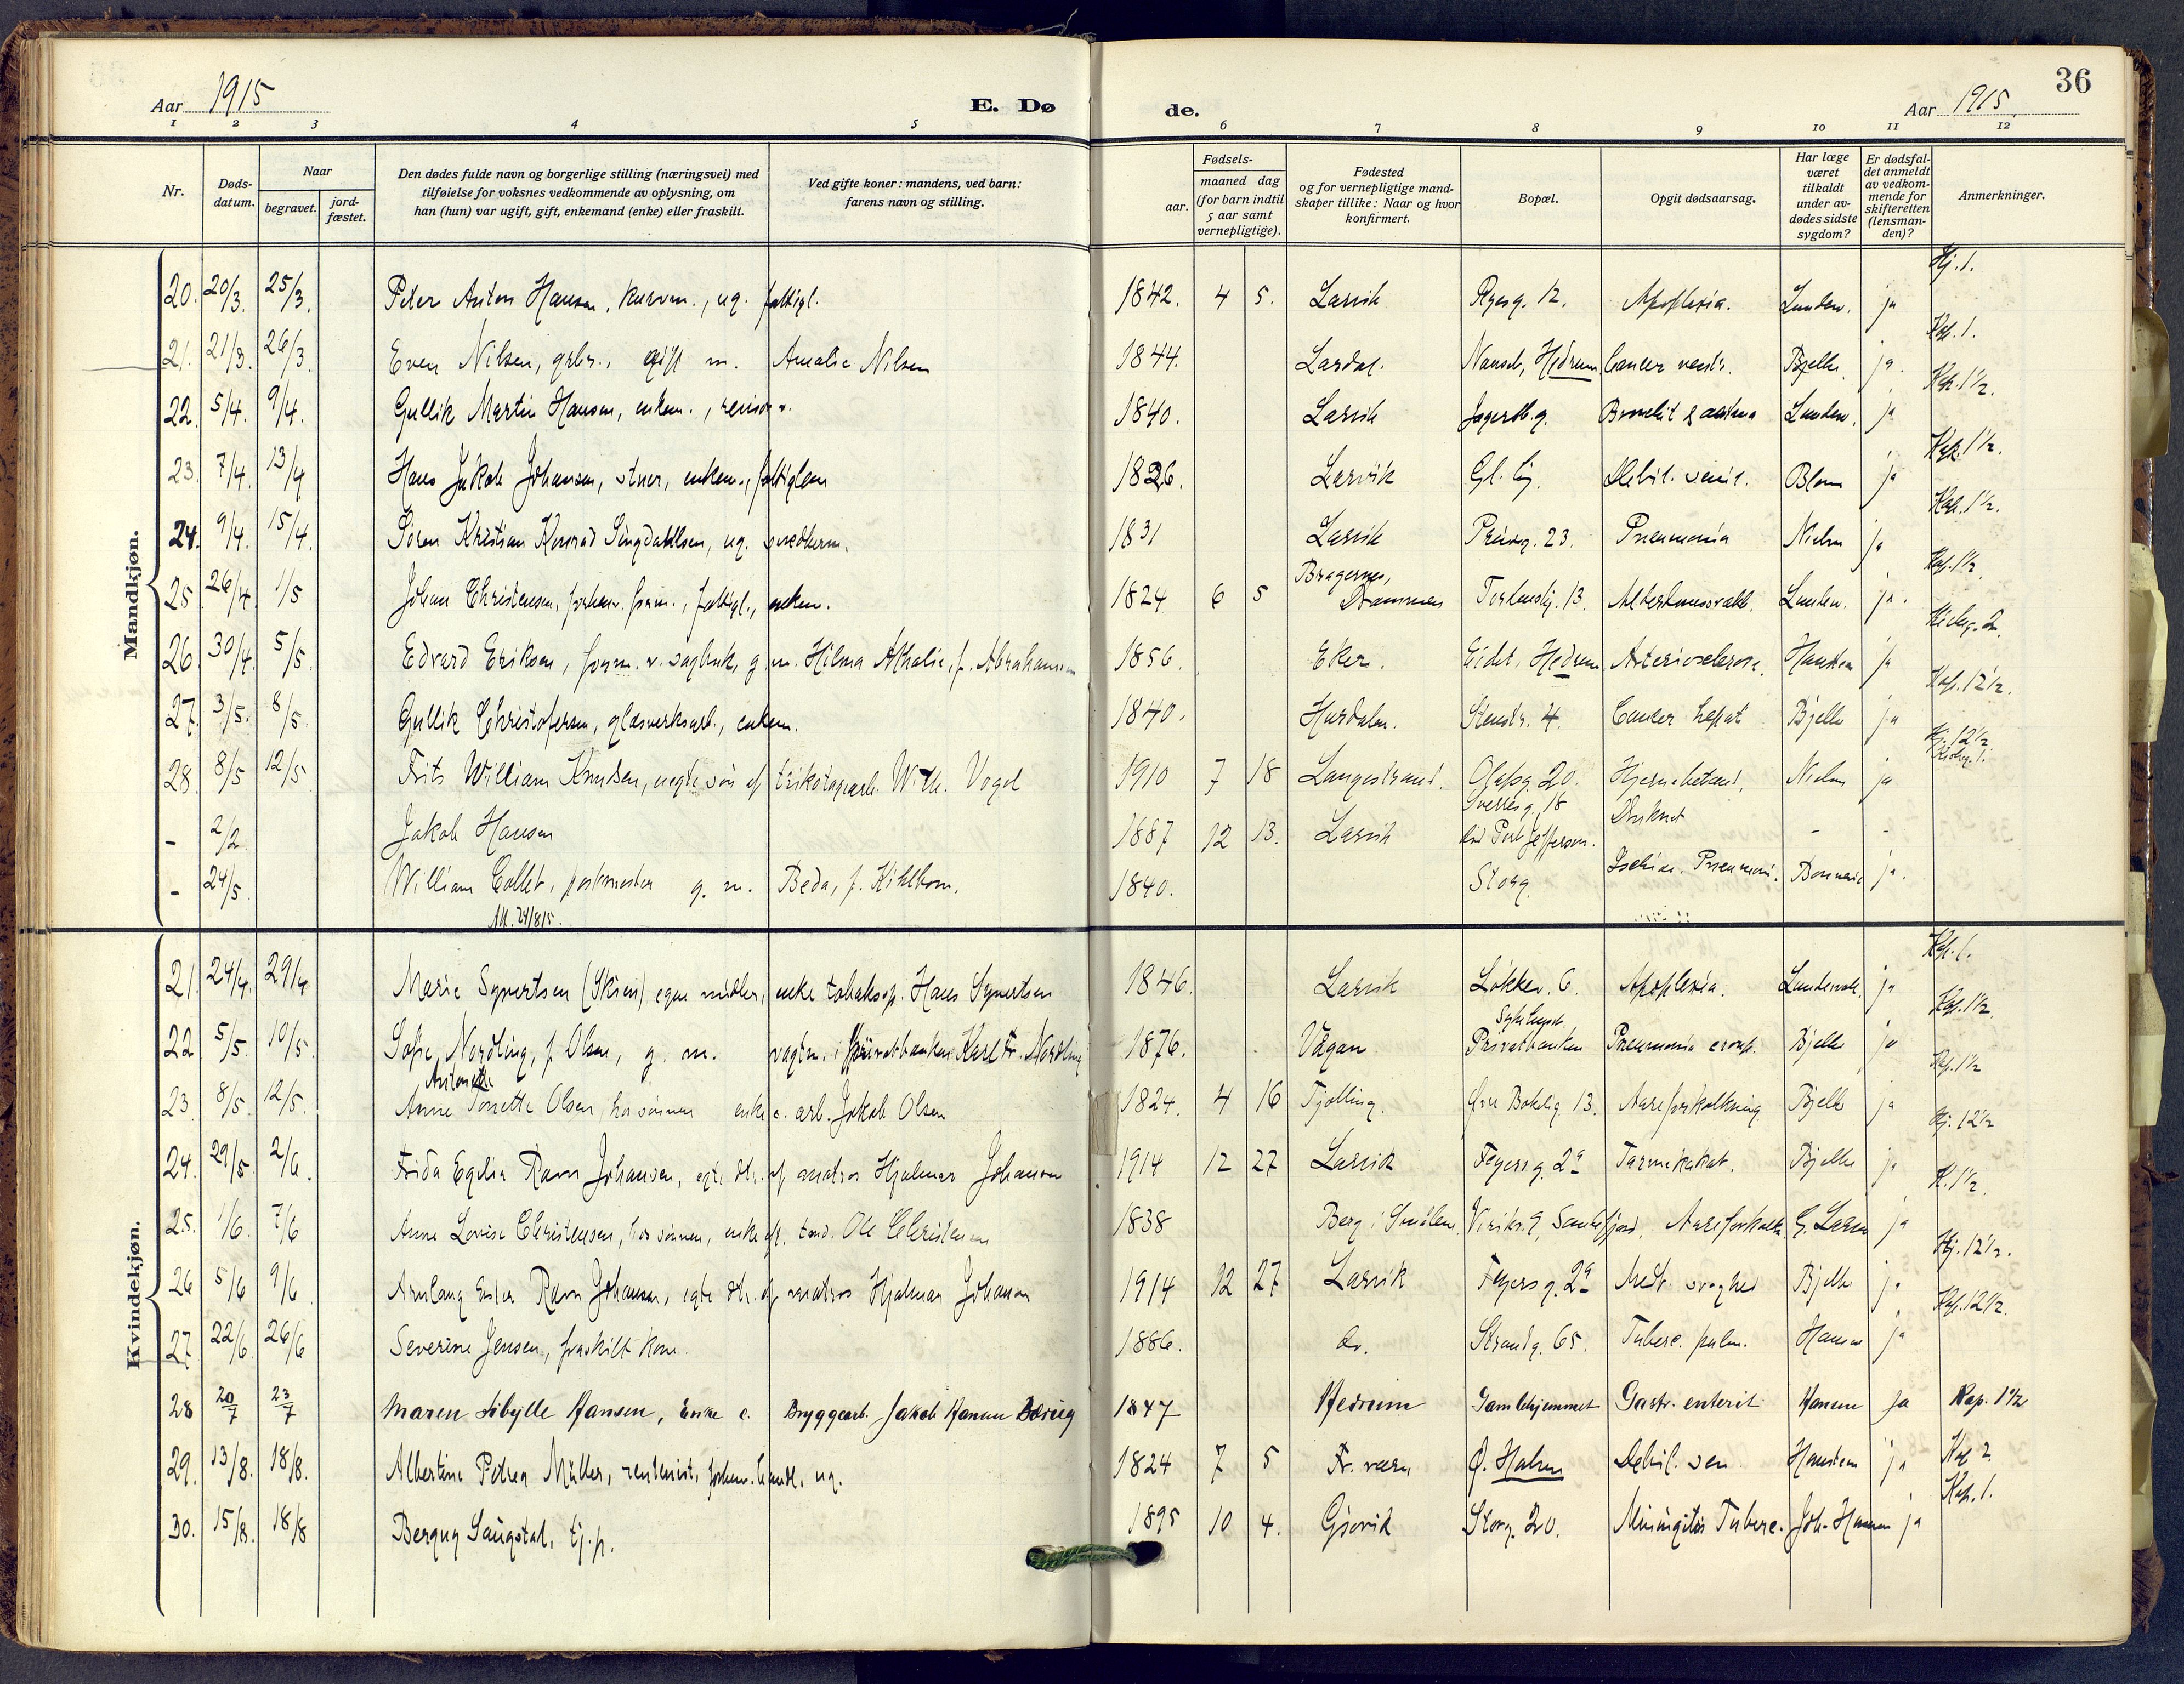 36
Aar 1915
E. Dø de.
Aar 1915.
1 2 3 4 5 6 7 8 9 10 11 12
Nr.
Døds-datum.
Naar
begravet.
jord-fæstet.
Den dødes fulde navn og borgerlige stilling (næringsvei) med tilføielse for voksnes vedkommende av oplysning, om han (hun) var ugift, gift, enkemand (enke) eller fraskilt.
Ved gifte koner: mandens, ved barn: farens navn og stilling.
Fødsels-
aar.
maaned dag (for barn indtil 5 aar samt vernepligtige).
Fødested og for vernepligtige mandskaper tillike: Naar og hvor konfirmert.
Bopæl.
Opgit dødsaarsag.
Har læge været tilkaldt under avdødes sidste sygdom?
Er dødsfaldet anmeldt av vedkommende for skifteretten (lensmanden)?
Anmerkninger.
Mandkjøn.
20. 20/3. 25/3. Peter Anton Hansen, kurvm., ug. fattigl. 1842. 4 5. Larvik Ryesg. 12. Apoplexia. Lunden. ja Hj. 1.
21. 21/3. 26/3. Even Nilsen, grbr., gift m. Amalie Nilsen 1844. Lardal. Nanset, Hedrum Cancer ventr. Bjelke ja. Kap. 1.
22. 5/4. 9/4. Gullik Martin Hansen, enkem., revisor. 1840. Larvik Jegersb.g. Bronchit & astma Lunden. ja Kap. 1½.
23. 7/4. 13/4 Hans Jakob Johansen, stuer, enkem., fattiglem 1826. Larvik Gl. Debil. senil. Blom ja Kap. 1½.
24. 9/4. 15/4. Søren Kristian Konrad Singdahlsen, ug. 1831 Larvik Prinsg. 23. Pneumonia Nielsen ja Kap. 1½.
25. 26/4. 1/5 Johan Christensen, forhenv. form., fattigl., enkem. 1824 6 5 Bragernes, Drammen Torstenslj. 13. Alderdomssvakh. Lunden. ja. Kap. 1½.
26. 30/4. 5/5. Edvard Eriksen, form. v. sagbruk, g. m. Hilma Athalie, f. Abrahamsen 1856. Eker. Eidet, Hedrum Arteriosclerose. Hansteen ja 2.
27. 3/5. 8/5. Gullik Christofersen, glasverksarb., enkem. 1840. Hurdalen. Stenstr. 4. Cancer hepat Bjelke ja Kap. 12½.
28. 8/5 12/5 Frits William Knudsen, uegte søn af trikotagearb. Wilh. Vogel 1910 7 18 Langestrand. Olafsg. 20. Hjernebetænd. Nielsen ja Hj. 12½
- 2/2. Jakob Hansen 1887 12 13. Larvik Sverresg. 18 Port Jefferson. Druknet - -
- 24/5. William Collet, postmester g. m. Beda, f. Kihlbom. 1840. Storg. Ischias. Pneumoni. ja.
24/8 15.
Kvindekjøn.
21. 24/4. 29/4 Marie Syvertsen (Skien) egne midler, enke tobakssp. Hans Syvertsen 1846. Larvik Løkkev. 6. Apoplexia. ja Kap. 1.
22 5/5. 10/5. Sofie Nordling, f. Olsen, g. m. vagtm. i Privatbanken Karl Fr. Nordling 1876. Vågan Privatbanken Pneumonia croup. Bjelke ja Kap. 1½.
23. 8/5. 12/5. Anne Tonette Olsen, hos sønnen enke e. arb. Jakob Olsen 1824. 4 16 Tjølling. Øvre Bøkelig 13. Aareforkalkning Bjelke ja Kap. 1½
24. 29/5 2/6. Frida Egelia Ravn Johansen, egte dtr. af matros Hjalmar Johansen 1914 12 27 Larvik Feyersg. 2a Tarmkatar. Bjelke ja Hj. 12½
25. 1/6. 7/6 Anne Lovise Christensen, hos sønnen, enke eft. tømd. Ole Christensen 1838 Berg i Smålene. Viriksg., Sandefjord. Aareforkalkn. G. Larsen ja K. 1½.
26 5/6 9/6 Arnlaug Ester Ravn Johansen, egte dtr. af matros Hjalmar Johansen 1914 12 27 Larvik Feyersg. 2a Medf. svaghed Bjelke ja Hj. 12½.
27 22/6. 26/6 Severine Jensen, fraskilt kone. 1886. do. Strandg. 65. Tuberc. pulm. Hansen ja Kap. 12½.
28 20/7 23/7 Maren Sibylle Hansen, Enke e. Bryggearb. Jakob Hansen 1847 Hedrum Gamlehjemmet Gastr. enterit Hansen ja Kap. 1½
29. 13/8. 18/8. Albertine Petrea Müller, rentenist, forhenv. handl. ug. 1824 7 5 Fr.værn Ø. Halsen Debil. sen Hansteen ja Kap 2.
30. 15/8. 18/8 Bergny Saugstad, tj.p. 1895 10 4. Gjøvik Storg. 20. Miningitis Tuberc. Joh. Hansen ja Kap. 1.